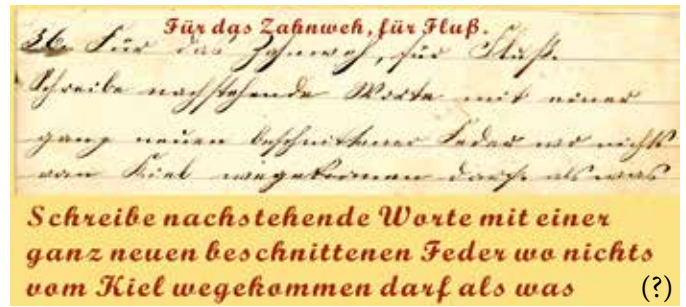 Für das Zahnweh, für Fluß.
36. Für das Zahnweh, für Fluß.
Schreibe nachstehende Worte mit einer
ganz neuen beschnittener Feder wo nichts
vom Kiel wegekommen darf als was
Schreibe nachstehende Worte mit einer
ganz neuen beschnittenen Feder wo nichts
vom Kiel wegekommen darf als was (?)